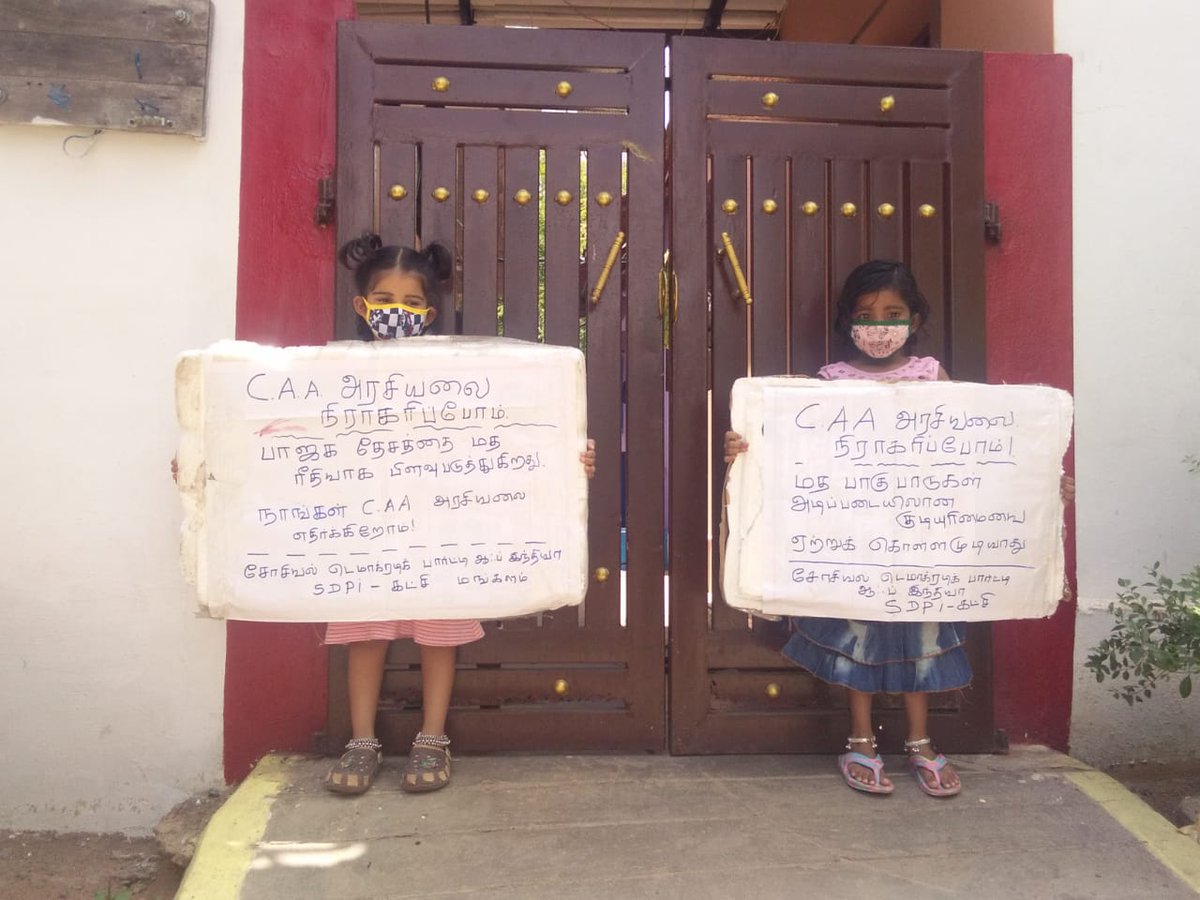 C.A.A அரசியலை
நிராகரிப்போம்.
பாஜக தேசத்தை மத
ரீதியாக பிளவுபடுத்துகிறது.
நாங்கள் C.A.A அரசியலை
எதிர்க்கிறோம்!
சோசியல் டெமாக்ரடிக் பார்ட்டி ஆஃப் இந்தியா
SDPI - கட்சி மங்கலம்
CAA அரசியலை
நிராகரிப்போம்!
மத பாகுபாடுகள்
அடிப்படையிலான
குடியுரிமையை
ஏற்றுக் கொள்ளமுடியாது
சோசியல் டெமாக்ரடிக் பார்ட்டி
ஆஃப் இந்தியா
SDPI-கட்சி